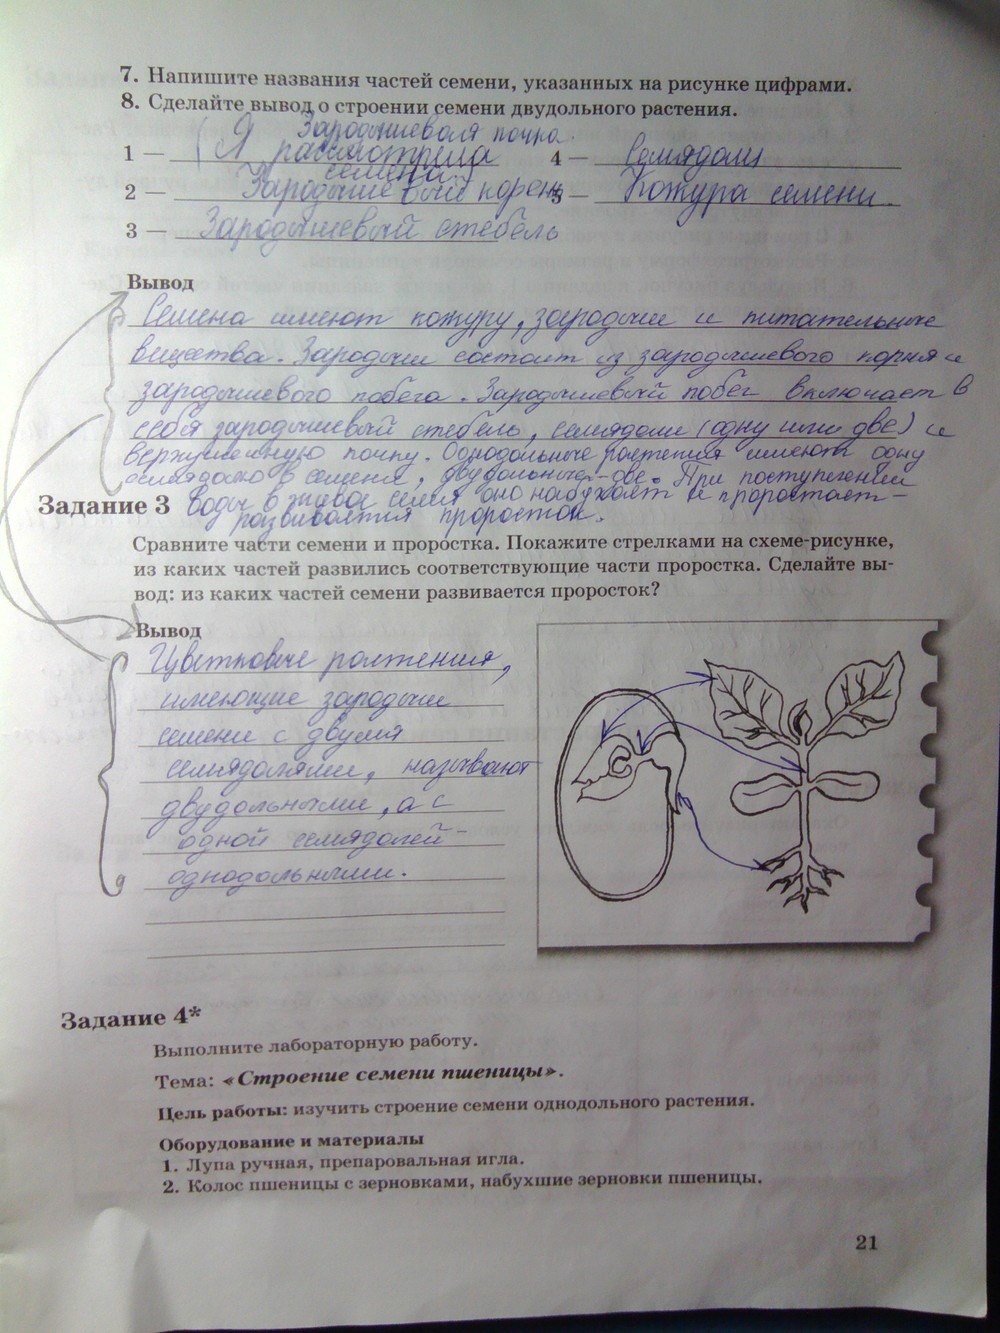 7. Напишите названия частей семени, указанных на рисунке цифрами.
8. Сделайте вывод о строении семени двудольного растения.
Зародышевая почка
1 — (Я рассмотрела
семена)
4 — Семядоли
2 — Зародышевый корень
5 — Кожура семени.
3 — Зародышевый стебель
Вывод
Семена имеют кожуру, зародыш и питательные
вещества. Зародыш состоит из зародышевого корня и
зародышевого побега. Зародышевый побег включает в
себя зародышевый стебель, семядоли (одну или две) и
верхушечную почку. Однодольные растения имеют одну
семядолю в семени, двудольные - две. При поступлении
Задание 3 воды в живое семя оно набухает и прорастает -
развивается проросток.
Сравните части семени и проростка. Покажите стрелками на схеме-рисунке,
из каких частей развились соответствующие части проростка. Сделайте вы-
вод: из каких частей семени развивается проросток?
Вывод
Цветковые растения,
имеющие зародыш
семени с двумя
семядолями, называют
двудольными, а с
одной семядолей -
однодольными.
Задание 4*
Выполните лабораторную работу.
Тема: «Строение семени пшеницы».
Цель работы: изучить строение семени однодольного растения.
Оборудование и материалы
1. Лупа ручная, препаровальная игла.
2. Колос пшеницы с зерновками, набухшие зерновки пшеницы.
21